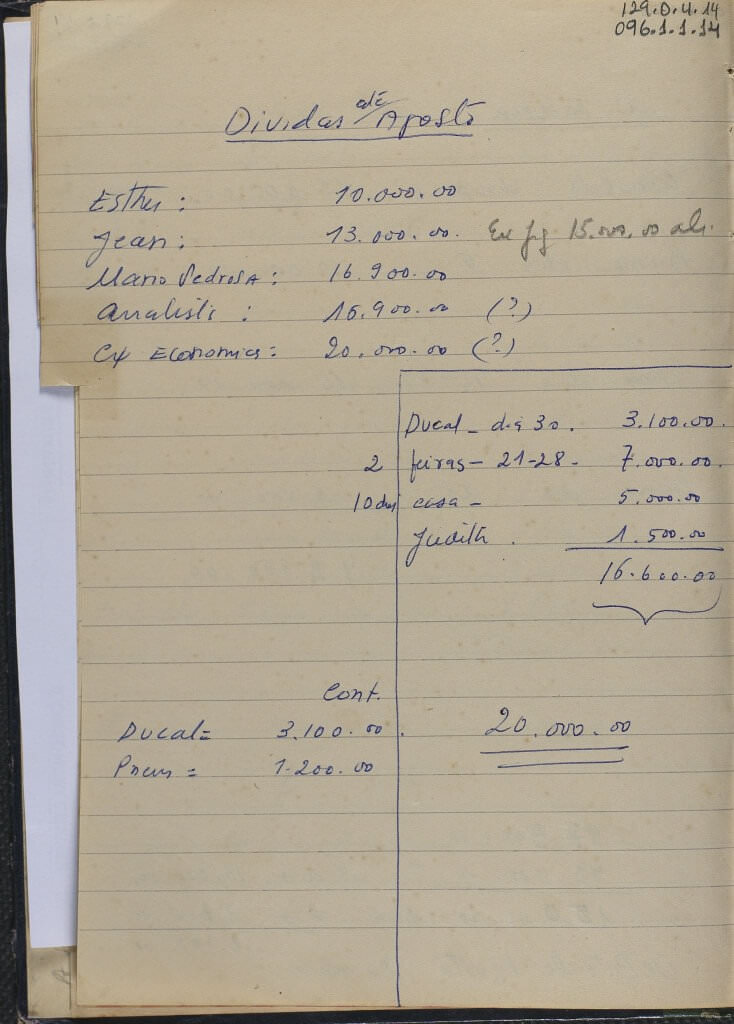 129.0.4.14
096.1.1.14
Dividas até Agosto
Esther: 10.000.00
Jean: 13.000.00. 15.000,00
Mario Pedrosa: 16.900.00
Analista: 16.900.00 (?)
Cx Economica: 20.000.00 (?)
Ducal - dia 30. 3.100.00.
2 feiras - 21-28 - 7.000.00.
10 dias casa - 5.000.00
Judith. 1.500.00
16.600.00
Cont.
Ducal = 3.100.00. 20.000.00
Pneus = 1.200.00